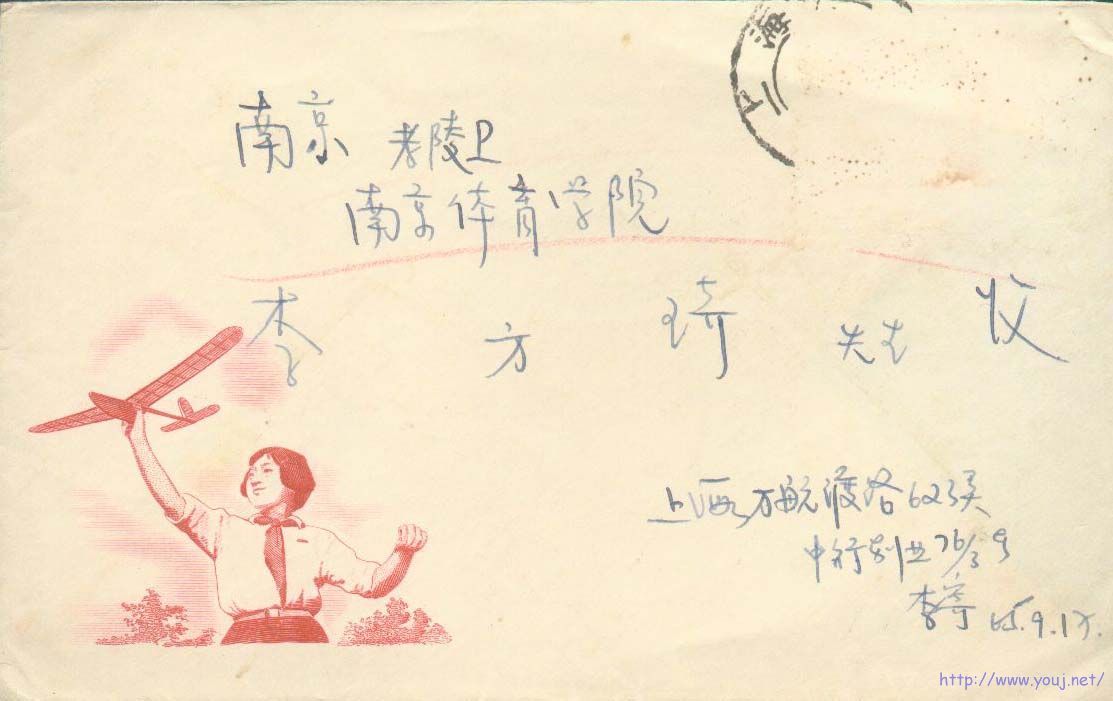 上海
南京 孝陵卫
南京体育学院
李 方 琦 先生 收
上海万航渡路623弄
中行别业76/3号
李寄 65.9.17.
http://www.youj.net/